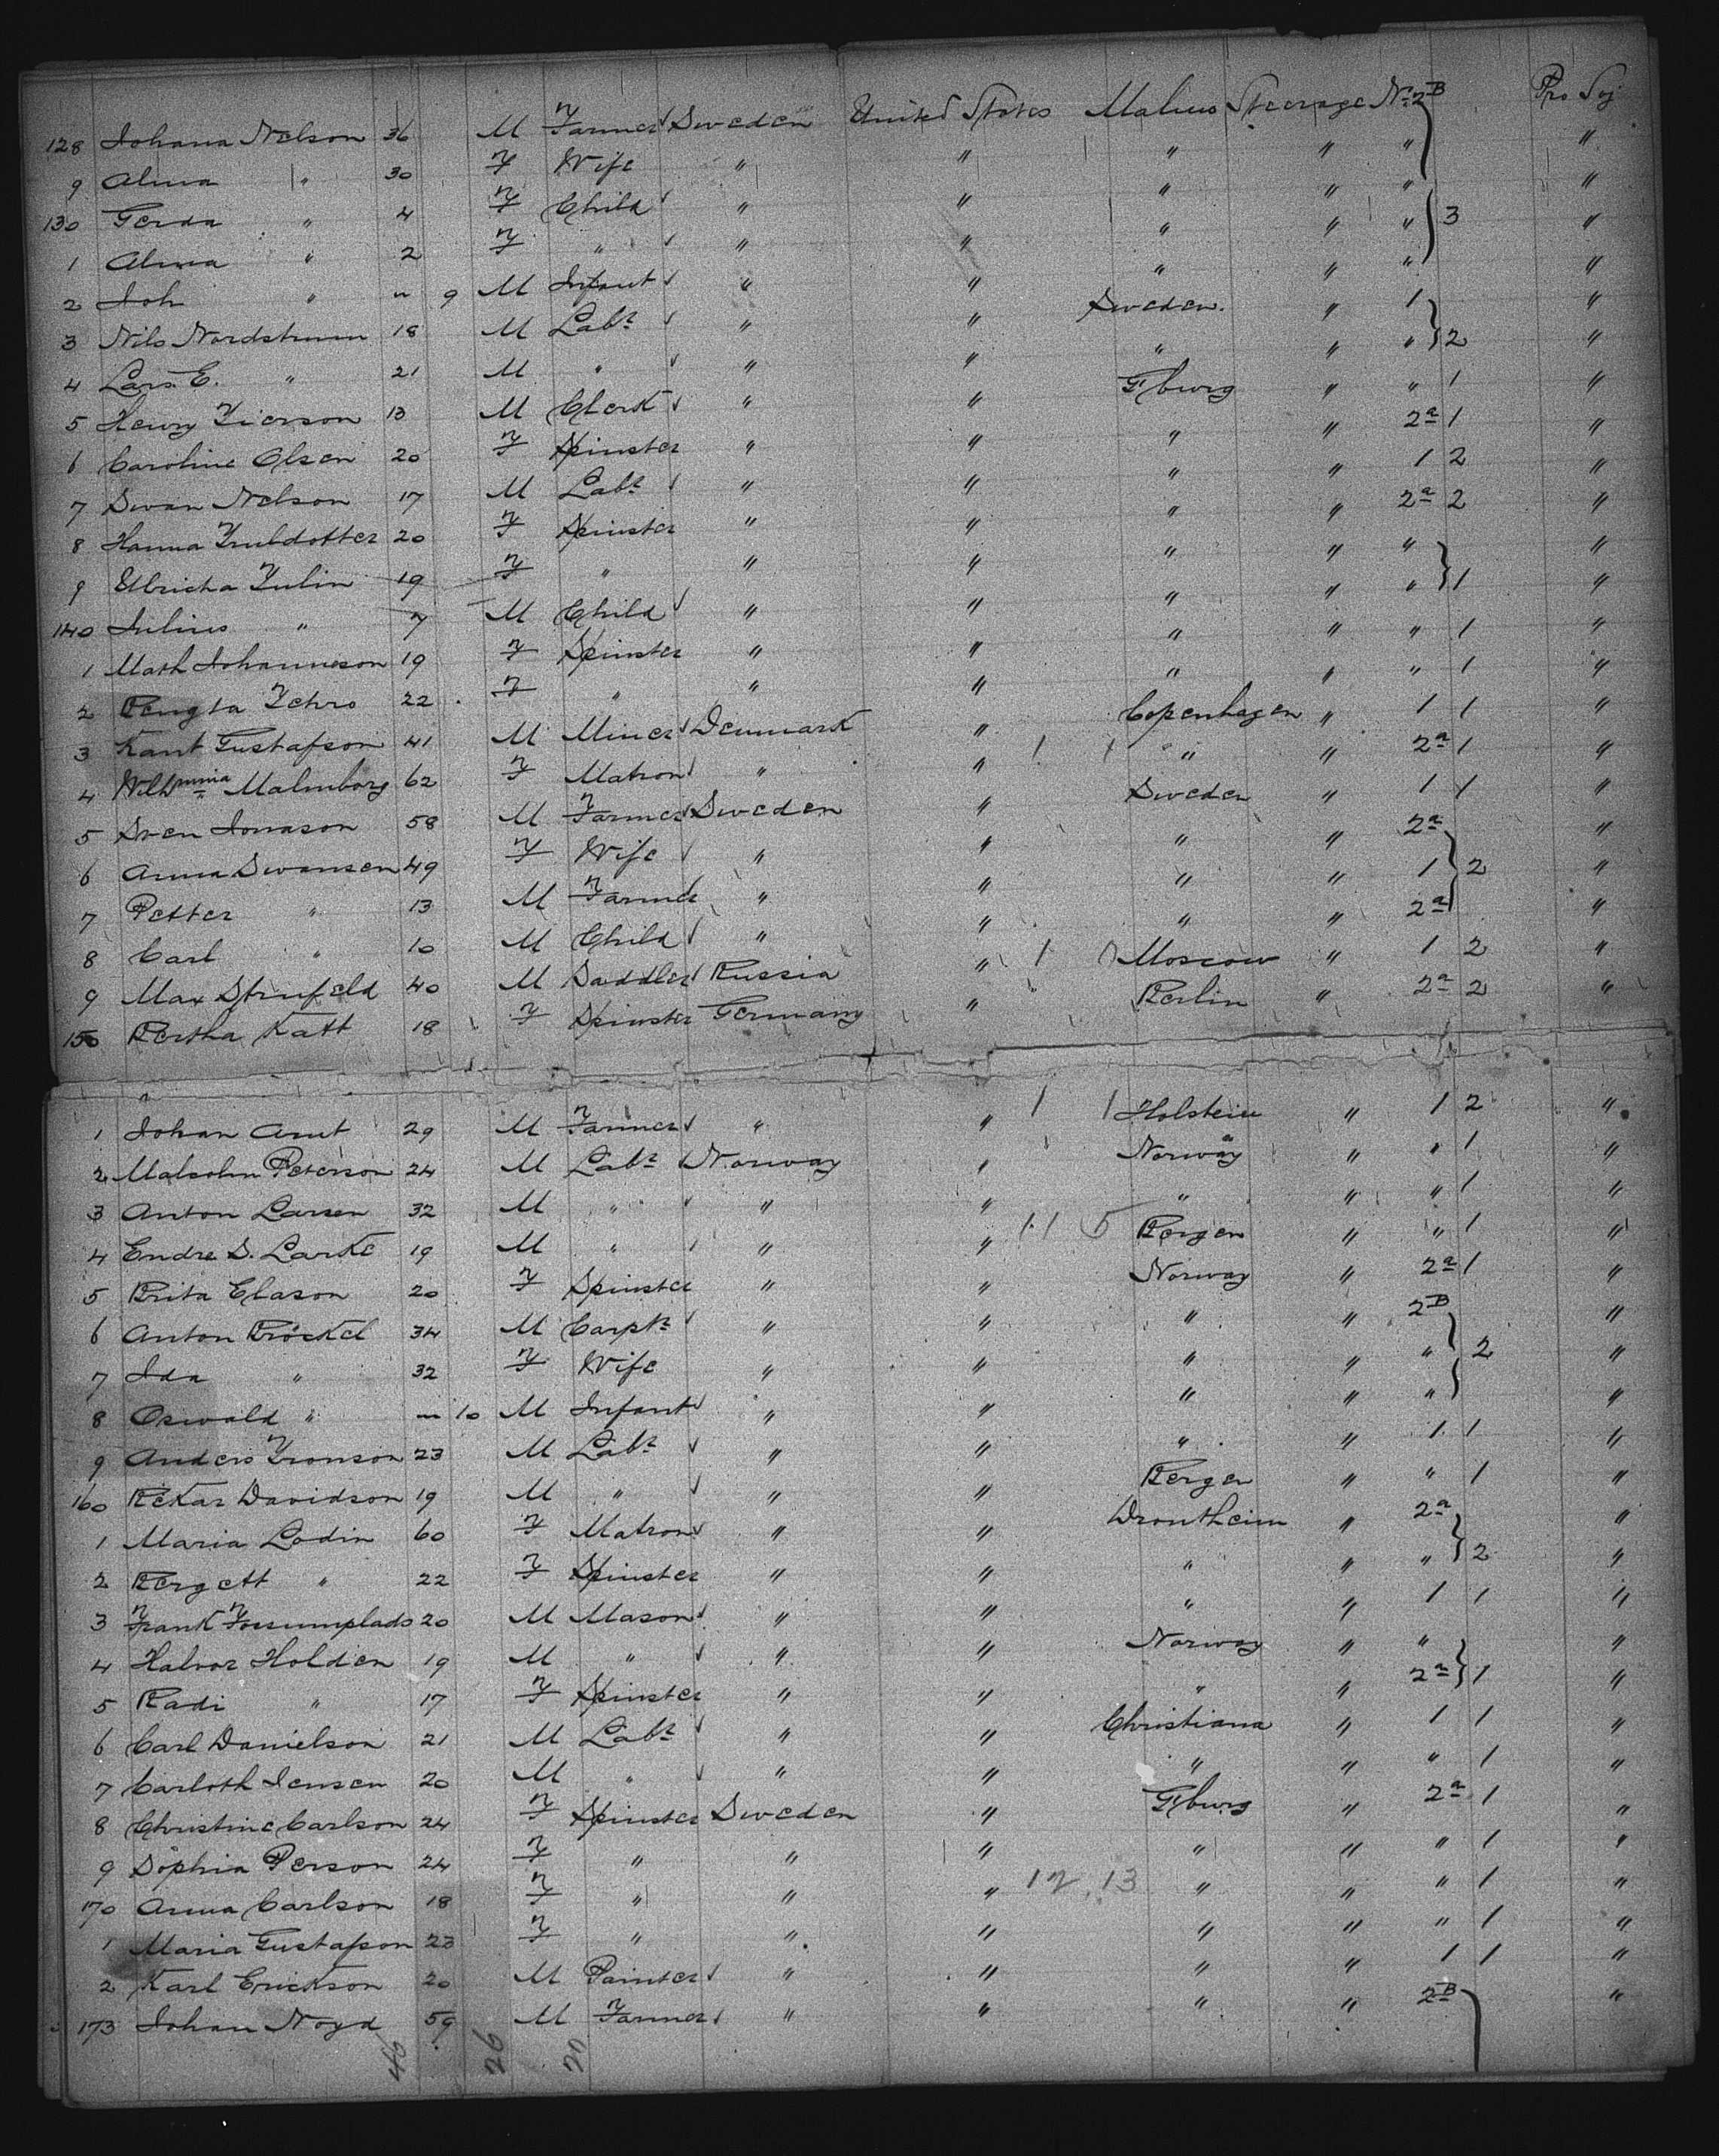 128 Johana Nelson 36 M Farmer Sweden United States Malmo Steerage No 2B Pro Soj
9 Alma " 30 F Wife " " " " " "
130 Gerda " 4 F Child " " " " " 3 "
1 Alma " 2 F " " " " " " "
2 Joh " " 9 M Infant " " " " " "
3 Nils Nordstrum 18 M Labr " " Sweden " 1 "
4 Lars E. " 21 M " " " " " " 2 "
5 Henry Fierson 13 M Clerk " " G'burg " " 1 "
6 Caroline Olsen 20 F Spinster " " " " 2a 1 "
7 Swan Nelson 17 M Labr " " " " 1 2 "
8 Hanna 20 F Spinster " " " " 2a 2 "
9 Ulricha Fulin 19 F " " " " " " "
140 Julius " 7 M Child " " " " " 1 "
1 Math Johanneson 19 F Spinster " " " " " 1 "
2 Bengta Fehrs 22 F " " " " " " 1 "
3 Kant Gustafson 41 M Miner Denmark " Copenhagen " 1 1 "
4 Wilhmina Malmborg 62 F Matron " " 1 1 " " 2a 1 "
5 Sven Jonason 58 M Farmer Sweden " Sweden " 1 1 "
6 Anna Swansen 49 F Wife " " " " 2a "
7 Petter " 13 M Farmer " " " " 1 2 "
8 Carl " 10 M Child " " " " 2a "
9 Max Strufeld 40 M Saddler Russia " 1 Moscow " 1 2 "
150 Bertha Katt 18 F Spinster Germany " Berlin " 2a 2 "
1 Johan Arnt 29 M Farmer " " 1 1 Holstein " 1 2 "
2 Malcolm Peterson 24 M Labr Norway " Norway " " 1 "
3 Anton Larsen 32 M " " " " " " 1 "
4 Endre S. Larke 19 M " " " 11 5 Bergen " " 1 "
5 Brita Elason 20 F Spinster " " Norway " 2a 1 "
6 Anton Bröckel 34 M Carptr " " " " 2B "
7 Ida " 32 F Wife " " " " " 2 "
8 Oswald " " 10 M Infant " " " " " "
9 Anders Fronson 23 M Labr " " " " 1 1 "
160 Rekar Davidson 19 M " " " Bergen " " 1 "
1 Maria Lodin 60 F Matron " " Drontheim " 2a "
2 Bergett " 22 F Spinster " " " " " 2 "
3 Frank Fossumplads 20 M Mason " " " " 1 1 "
4 Halvor Holden 19 M " " " Norway " " "
5 Radi " 17 F Spinster " " " " 2a 1 "
6 Carl Danielson 21 M Labr " " Christiana " 1 1 "
7 Carloth Jensen 20 M " " " " " " 1 "
8 Christine Carlson 24 F Spinster Sweden " G'burg " 2a 1 "
9 Sophia Person 24 F " " " " " " 1 "
170 Anna Carlson 18 F " " " 12 13 " " " 1 "
1 Maria Gustafson 23 F " " " " " " 1 "
2 Karl Erickson 20 M Painter " " " " 1 1 "
173 Johan Noyd 59 M Farmer " " " " 2B "
46 26 20